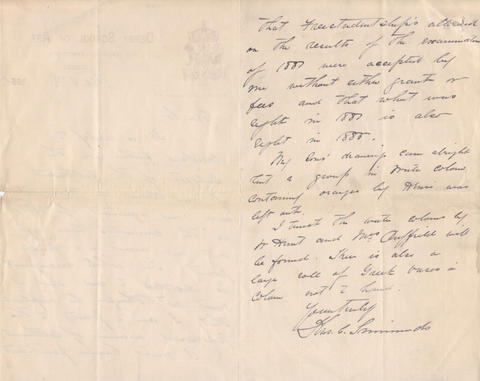 That Freestudentships allowed
on the results of the examination
of 1887 were accepted by
me without either grants or
fees and that what was
right in 1887 is also
right in 1888.
My Sons' drawings came alright
but a group in Water Colour
containing oranges by was
left out.
I trust the water colours by
Hunt and Mrs Duffield will
be found. There is also a
large roll of Greek Vases in
Colour not to hand.
Yours truly
C. Simmonds